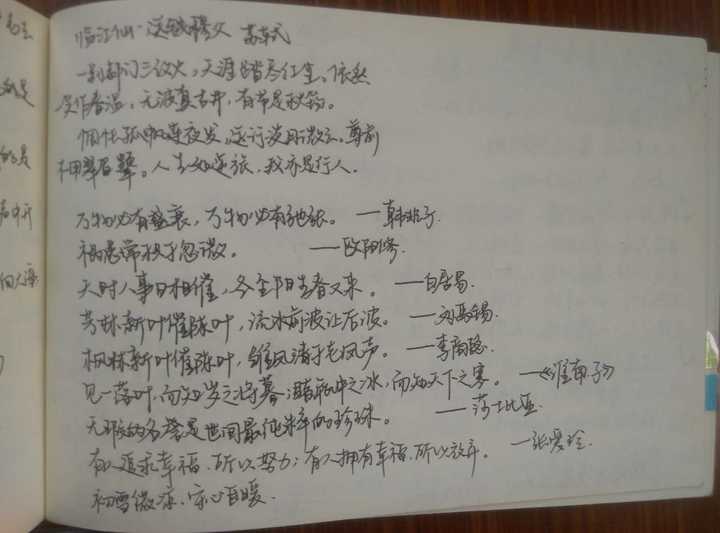 临江仙·送钱穆父 苏东坡
一别都门三改火，天涯踏尽红尘。依然
笑作春温，无波真古井，有节是秋筠。
惆怅孤帆连夜发，送行淡月微云。尊前
不用翠眉颦。人生如逆旅，我亦是行人。
万物必有盛衰，万物必有弛张。 ——韩非子.
祸患常积于忽微。 ——欧阳修.
天时人事日相催，冬至阳生春又来。 ——白居易.
芳林新叶催陈叶，流水前波让后波。 ——刘禹锡.
枫林新叶催陈叶，雏凤清于老凤声。 ——李商隐.
见一落叶，而知岁之将暮；睹瓶中之冰，而知天下之寒。 ——《淮南子》
无瑕的名誉是世间最纯粹的珍珠。 ——莎士比亚
有人追求幸福，所以努力；有人拥有幸福，所以放弃。 ——张爱玲.
初雪微凉，安心自暖.
的是
的是